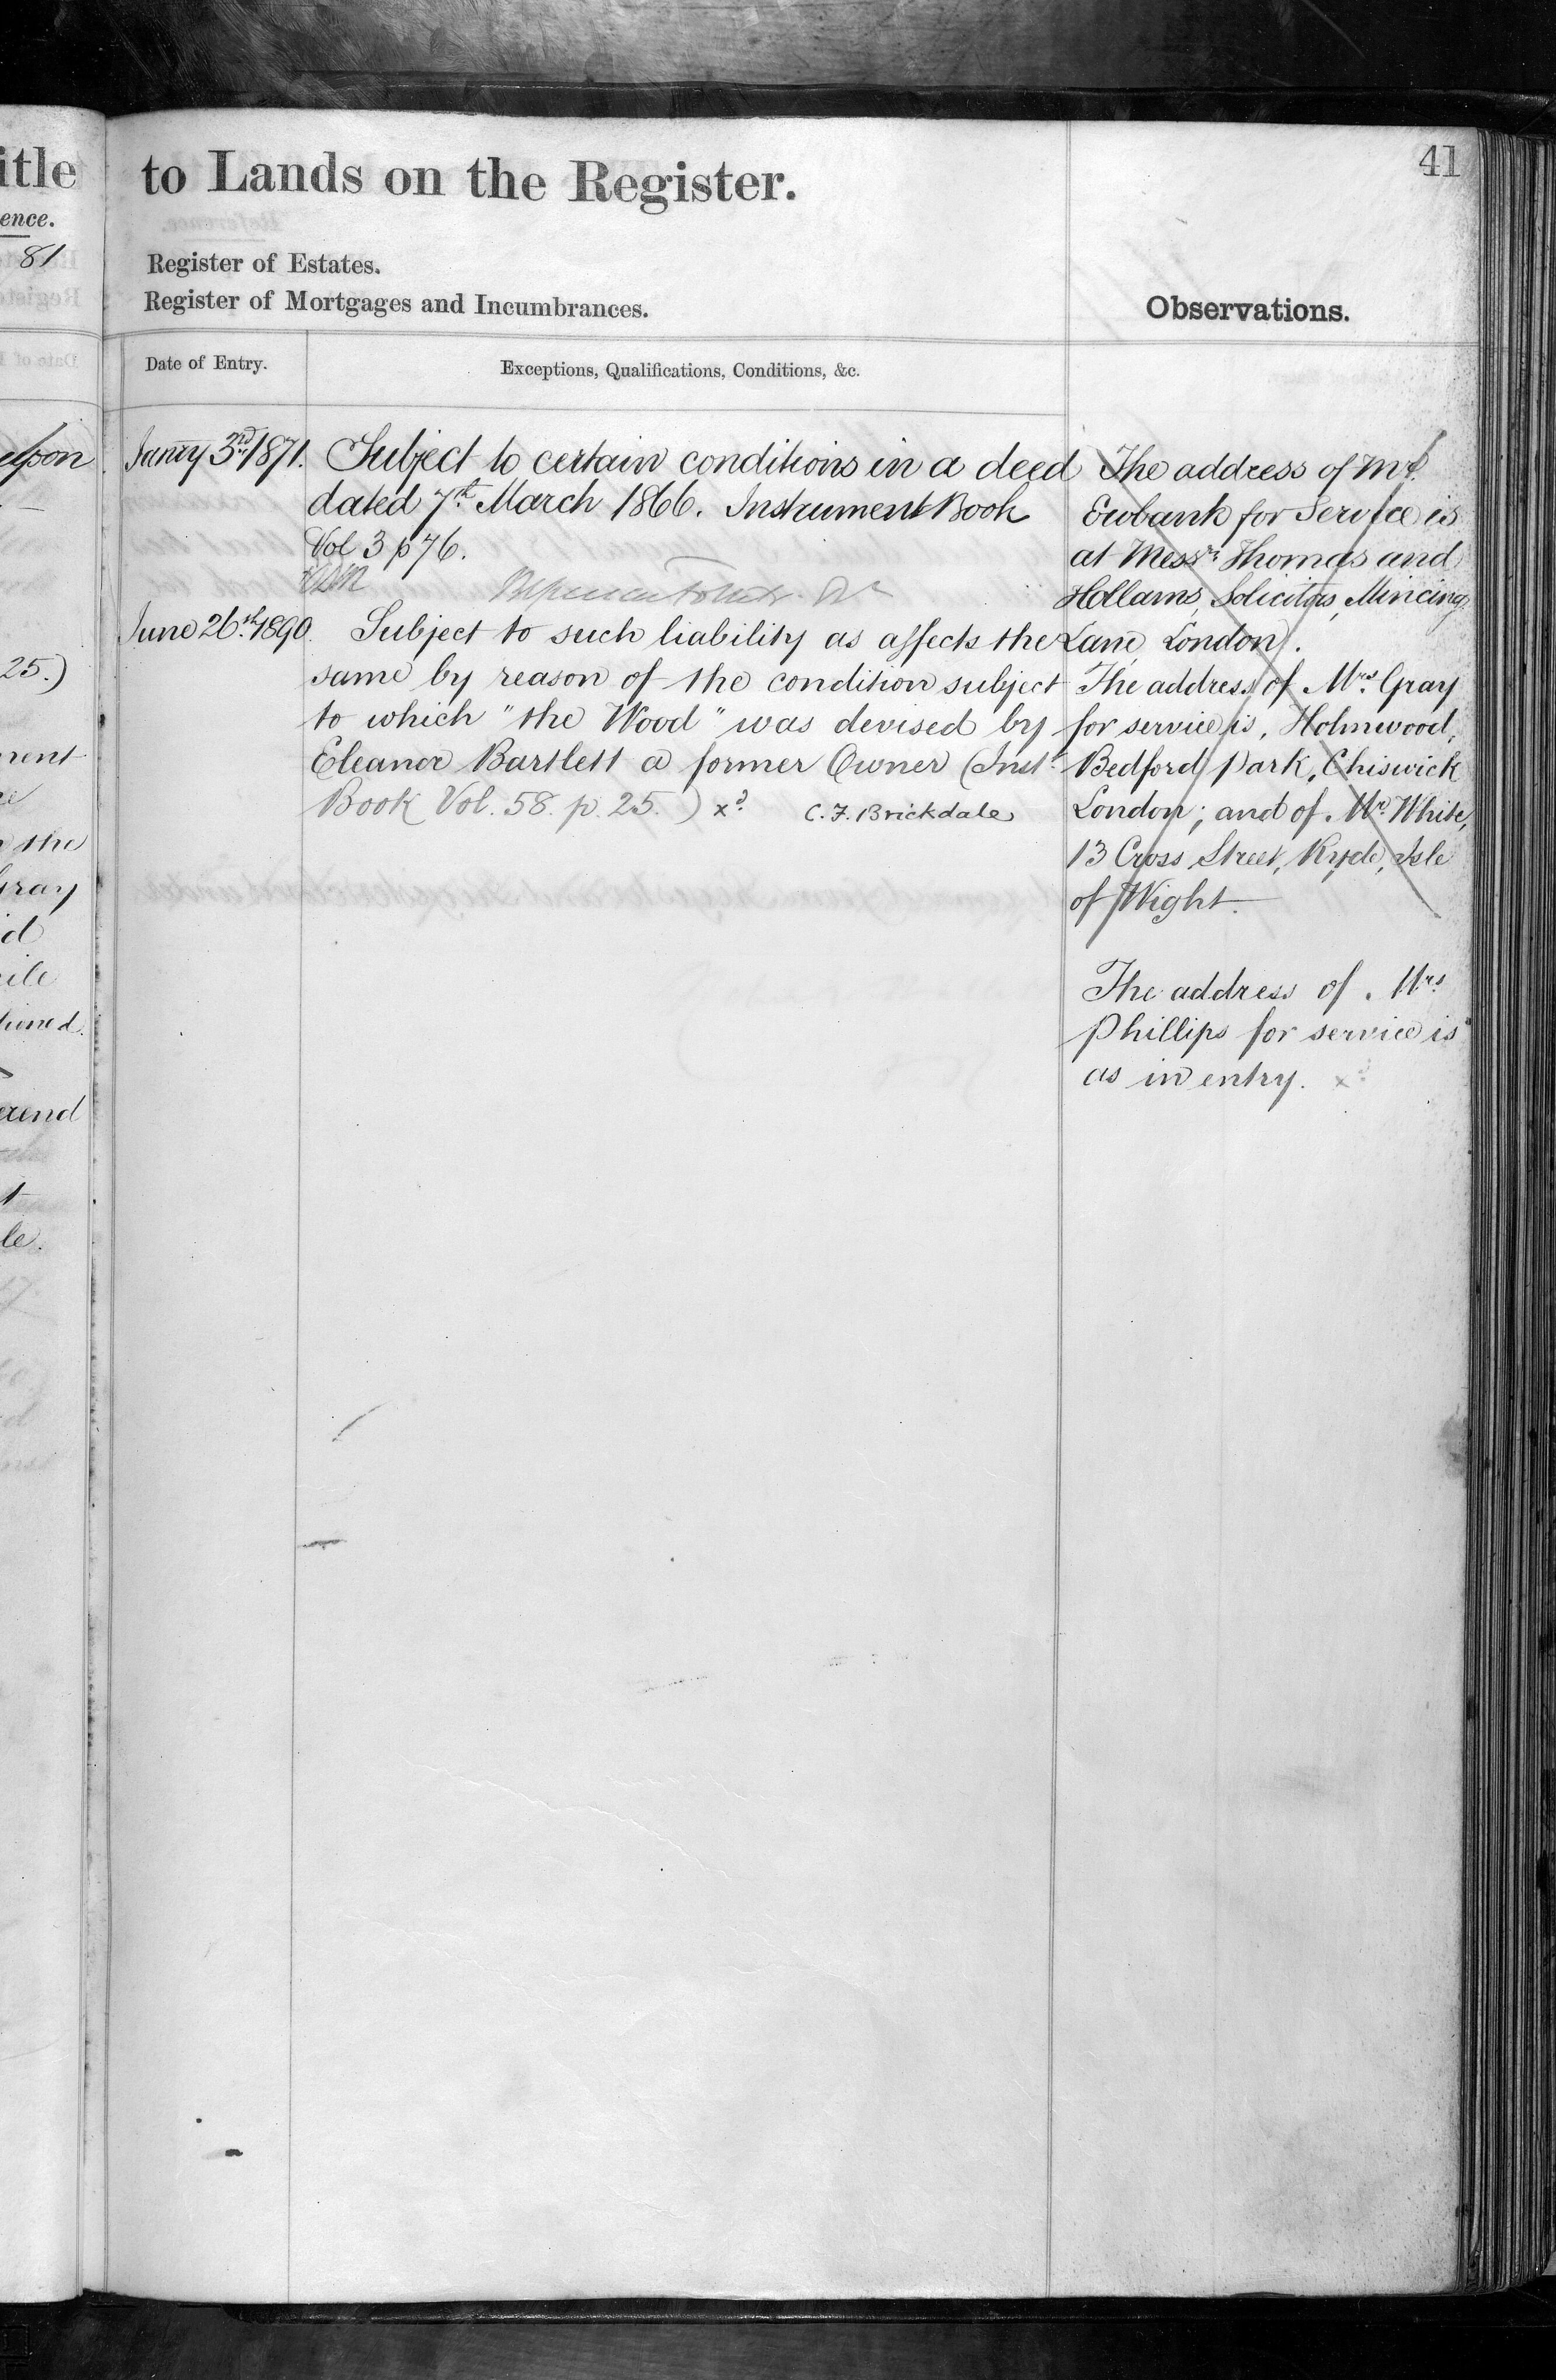 itle
ence.
81
25.)
the
Gray
to Lands on the Register.
41
Register of Estates.
Register of Mortgages and Incumbrances.
Observations.
Date of Entry.
Exceptions, Qualifications, Conditions, &c.
Janry 3rd 1871.
Subject to certain conditions in a deed
dated 7th March 1866. Instrument Book
Vol 3 p 76.
June 26th 1890.
Subject to such liability as affects the
same by reason of the condition subject
to which "the Wood" was devised by
Eleanor Bartlett a former Owner (Inst.
Book Vol. 58. p. 25.) xd C. F. Brickdale
The address of Mr.
Ewbank for Service is
at Messrs Thomas and
Hollams, Solicitors, Mincing
Lane, London.
The address of Mrs. Gray
for service is, Holmwood,
Bedford Park, Chiswick
London; and of Mr. White,
13 Cross Street, Ryde, Isle
of Wight.
The address of Mrs
Phillips for service is
as in entry. xd